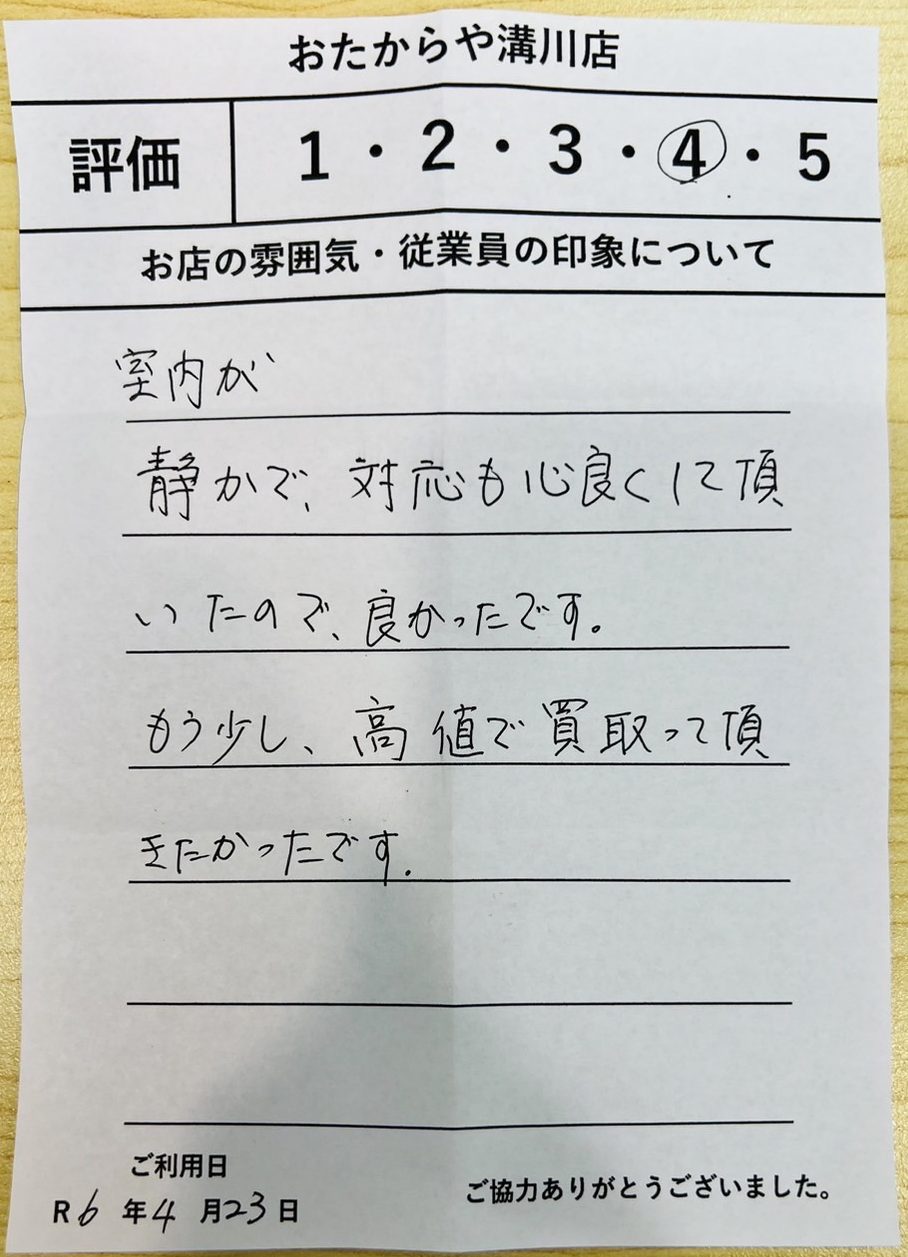 おたからや溝川店
評価 1・2・3・4・5
お店の雰囲気・従業員の印象について
室内が
静かで、対応も心良くして頂
いたので、良かったです。
もう少し、高値で買取って頂
きたかったです.
ご利用日
R6年4月23日
ご協力ありがとうございました。